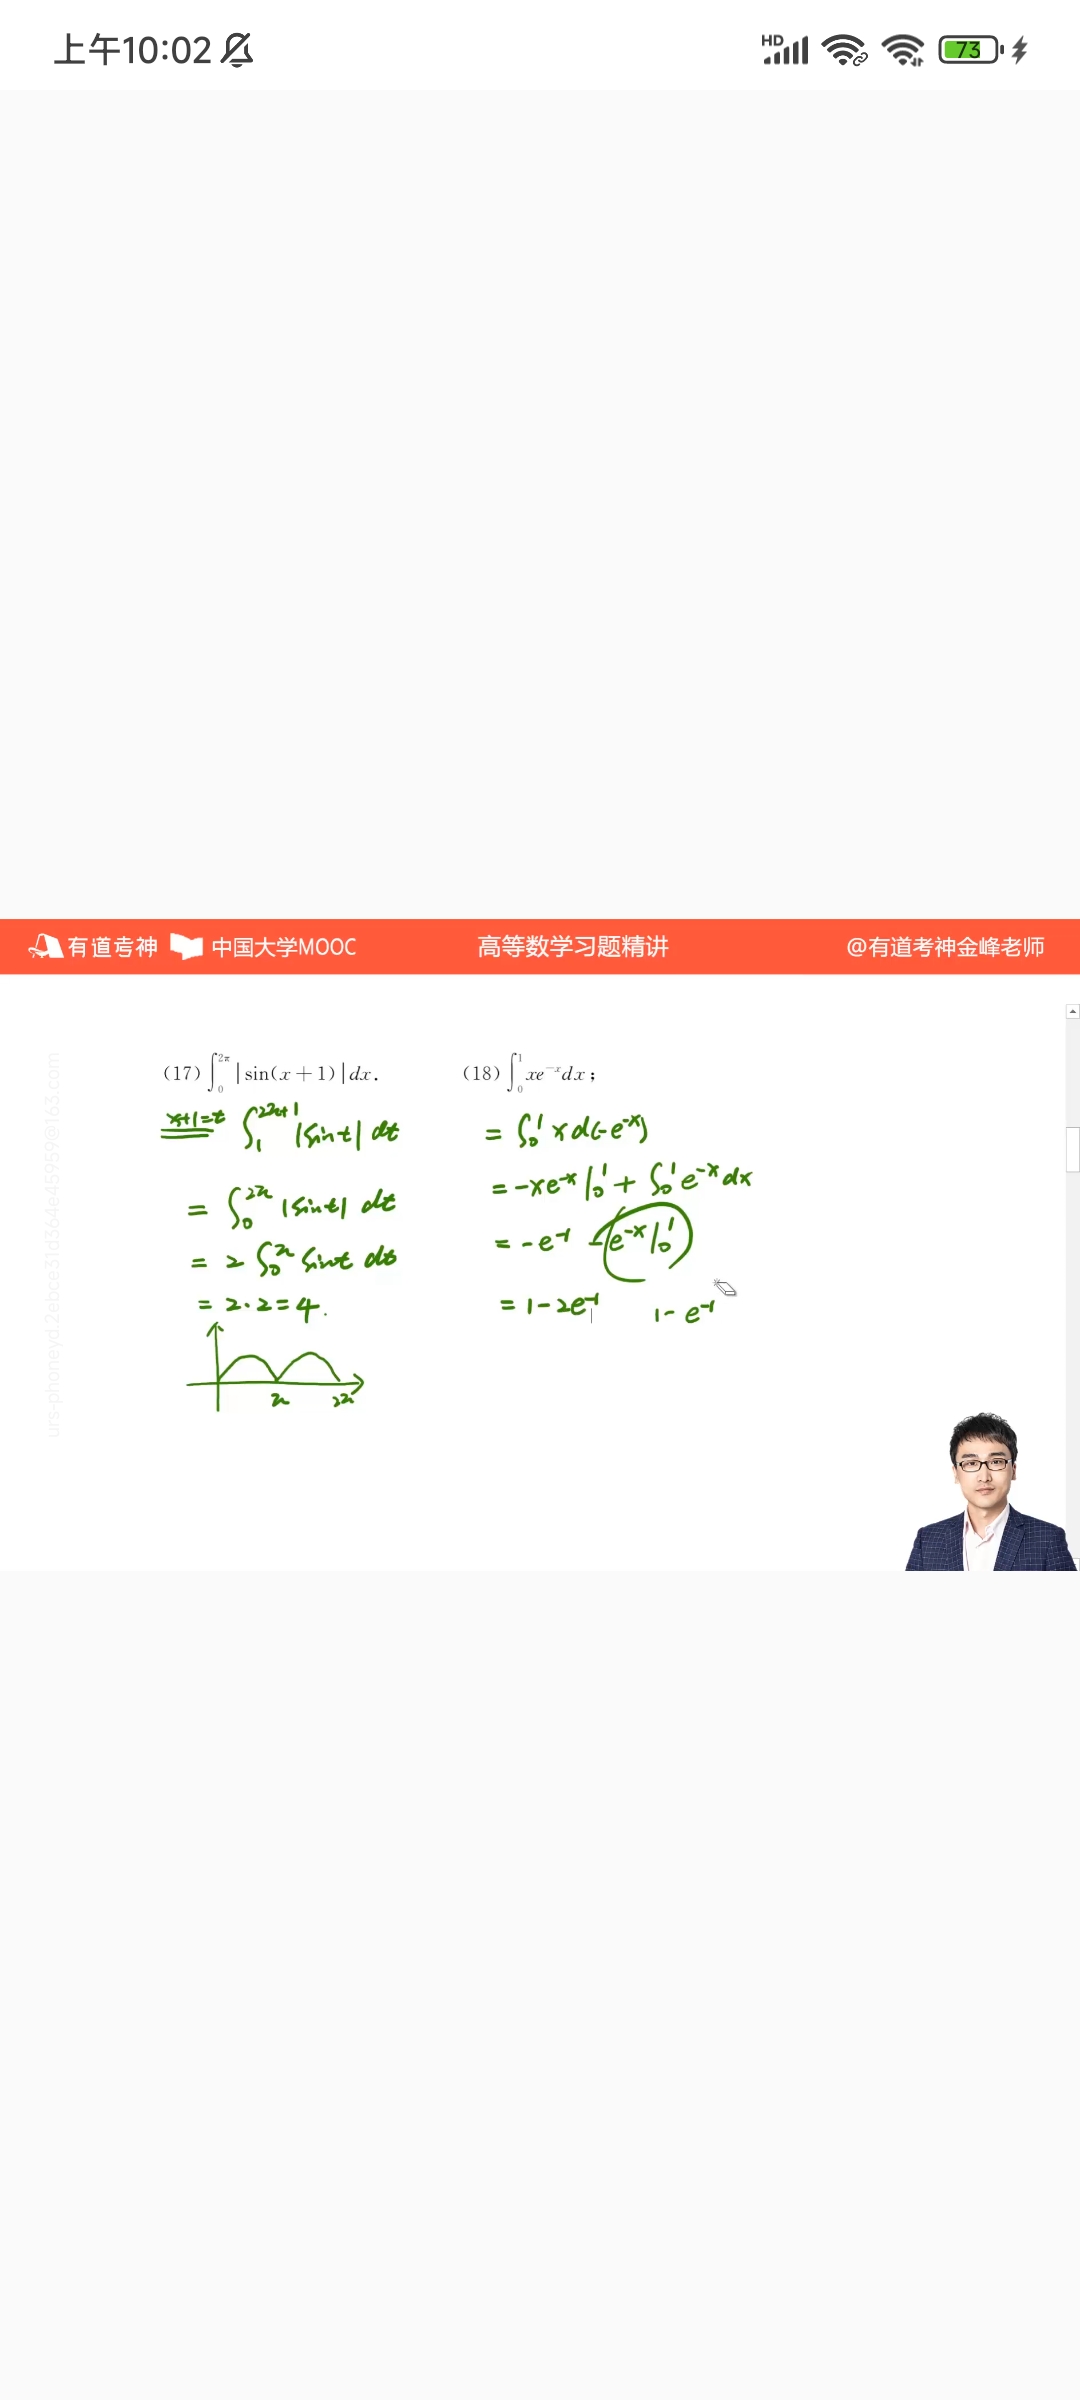 上午10:02
HD 73
有道考神 中国大学MOOC 高等数学习题精讲 @有道考神金峰老师
urs-phoneyd.2ebce31d364e45959@163.com
(17) ∫₀^{2π} |sin(x+1)|dx.
x+1=t ∫₁^{2π+1} |sint| dt
= ∫₀^{2π} |sint| dt
= 2 ∫₀^π sint dt
= 2·2=4.
π 2π
(18) ∫₀¹ xe⁻ˣdx;
= ∫₀¹ x d(-e⁻ˣ)
= -xe⁻ˣ|₀¹ + ∫₀¹ e⁻ˣ dx
= -e⁻¹ - e⁻ˣ|₀¹
= 1-2e⁻¹ 1-e⁻¹